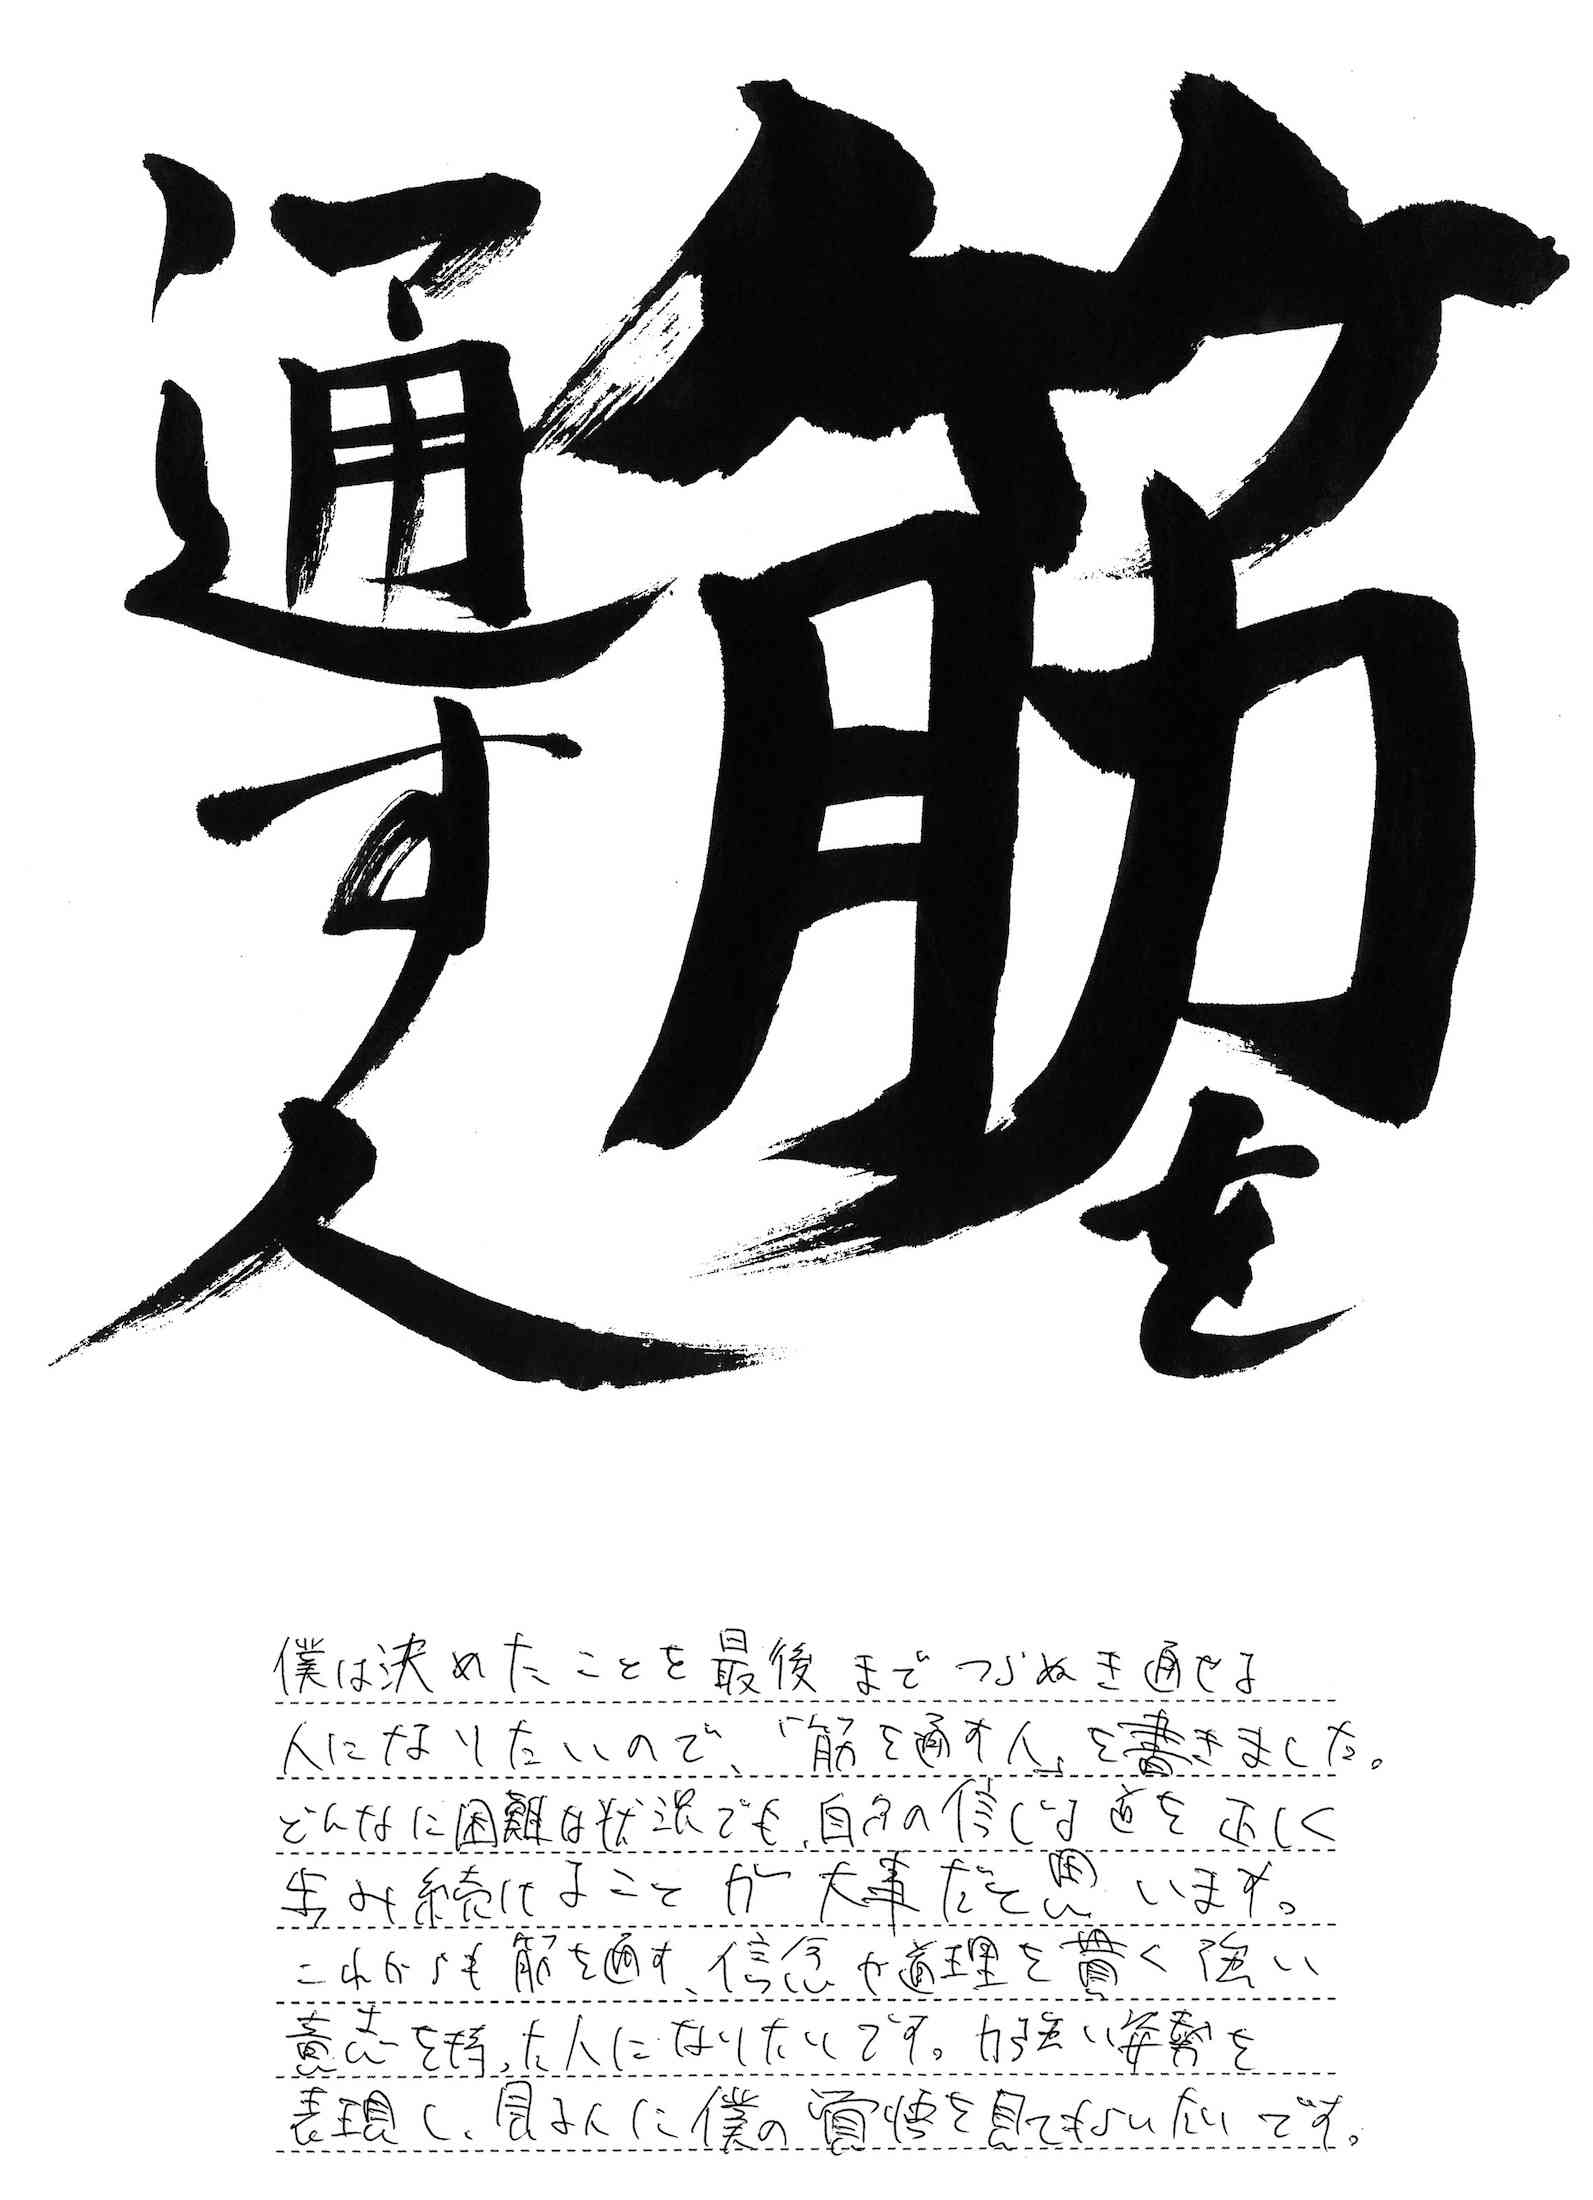 筋を
通す人
僕は決めたことを最後までつらぬき通せる
人になりたいので、「筋を通す人」を書きました。
どんなに困難な状況でも、自分の信じる道を正しく
歩み続けることが大事だと思います。
これからも筋を通す、信念や道理を貫く強い
意志を持った人になりたいです。力強い姿勢を
表現し、見る人に僕の覚悟を見てもらいたいです。